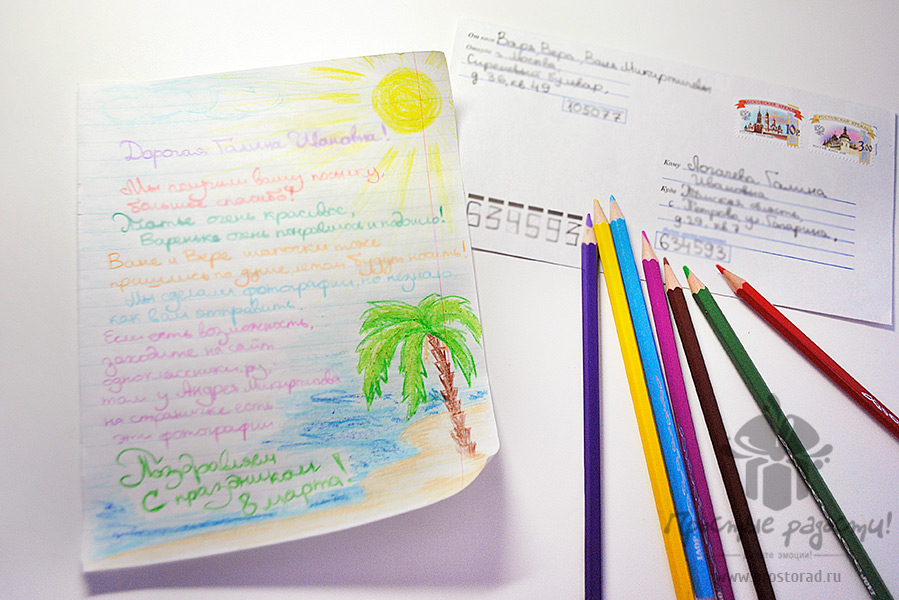 Дорогая Галина Ивановна!
Мы получили вашу посылку,
большое спасибо!
Платье очень красивое,
Вареньке очень понравилось и подошло!
Ване и Вере шапочки тоже
пришлись по душе, летом будут носить!
Мы сделали фотографии, но не знаю
как вам отправить.
Если есть возможность,
заходите на сайт
одноклассники.ру,
там у Андрея Микиртитова
на страничке есть
эти фотографии
Поздравляем
С праздником
8 марта!
От кого Варя, Вера, Ваня
Откуда г. Москва
Сиреневый бульвар,
д. 36, кв. 49
105077
МОСКОВСКИЙ КРЕМЛЬ
10р
РОСТОВСКИЙ КРЕМЛЬ
3.00
Кому Галина
Ивановна
Куда область
с. ул. Гагарина,
д. 29, кв. 7
634593
634593
Простые радости!
эмоции!
www.prostorad.ru